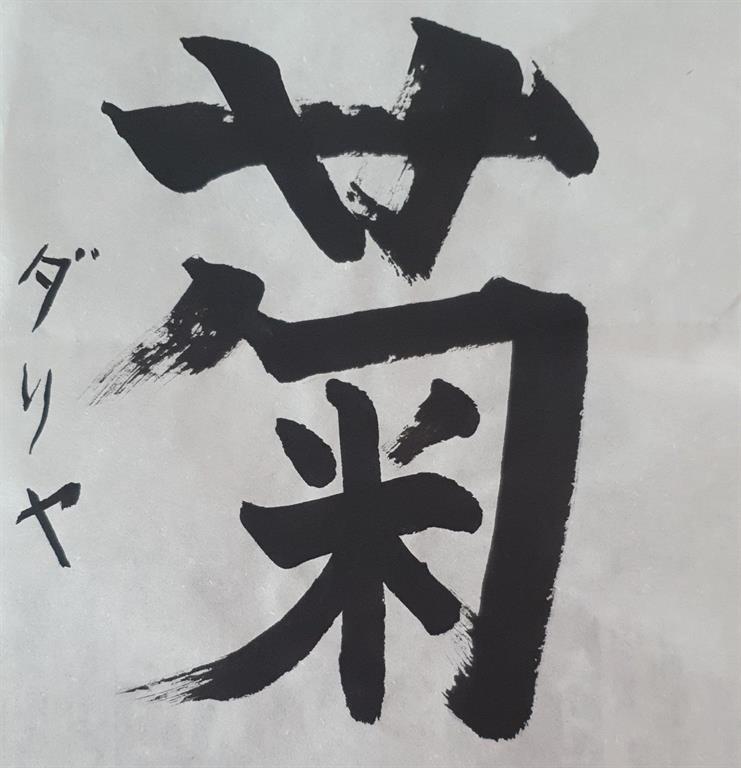 菊
ダリヤ